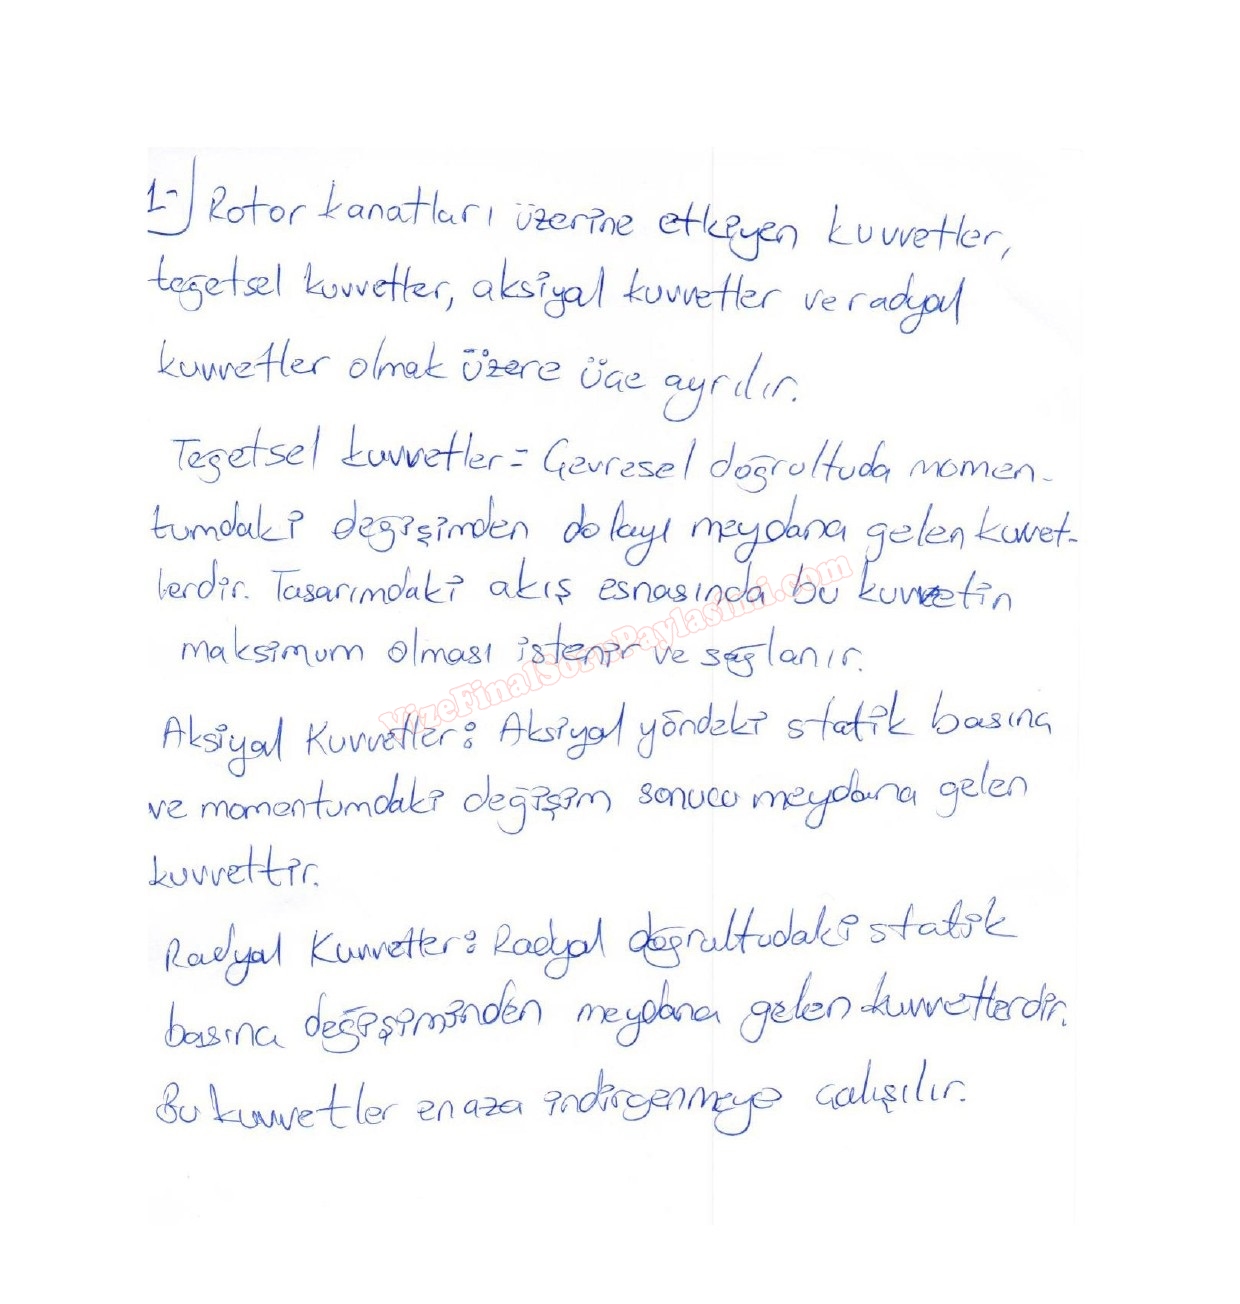 1-) Rotor kanatları üzerine etkiyen kuvvetler,
teğetsel kuvvetler, aksiyal kuvvetler ve radyal
kuvvetler olmak üzere üçe ayrılır.
Teğetsel kuvvetler = Çevresel doğrultuda momen-
tumdaki değişimden dolayı meydana gelen kuvvet-
lerdir. Tasarımdaki akış esnasında bu kuvvetin
maksimum olması istenir ve sağlanır.
VizeFinalSoruPaylasimi.com
Aksiyal Kuvvetler: Aksiyal yöndeki statik basınç
ve momentumdaki değişim sonucu meydana gelen
kuvvettir.
Radyal Kuvvetler: Radyal doğrultudaki statik
basınç değişiminden meydana gelen kuvvetlerdir.
Bu kuvvetler en aza indirgenmeye çalışılır.